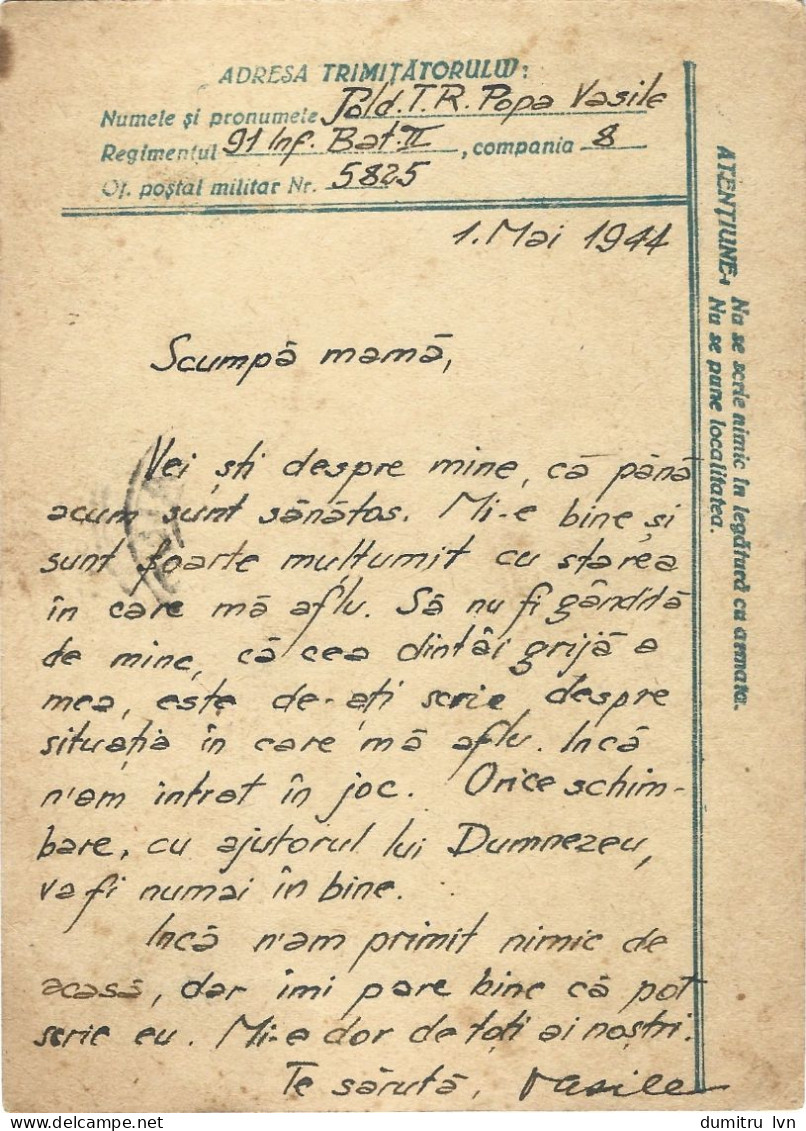 ADRESA TRIMIȚĂTORULUI:
Numele și pronumele Sold. T.R. Popa Vasile
Regimentul 91 Inf. Bat. II, compania 8
Of. poștal militar Nr. 5825
1. Mai 1944
Scumpă mamă,
Vei ști despre mine, că până
acum sunt sănătos. Mi-e bine și
sunt foarte mulțumit cu starea
în care mă aflu. Să nu fi gândită
de mine, că cea dintâi grijă a
mea, este de-ați scrie despre
situația în care mă aflu. Incă
n'am intrat în joc. Orice schim-
bare, cu ajutorul lui Dumnezeu,
va fi numai în bine.
Incă n'am primit nimic de
acasă, dar îmi pare bine că pot
scrie eu. Mi-e dor de toți ai noștri.
Te sărută, Vasile
ATENȚIUNE: Nu se scrie nimic în legătură cu armata.
Nu se pune localitatea.
dumitru_lvn